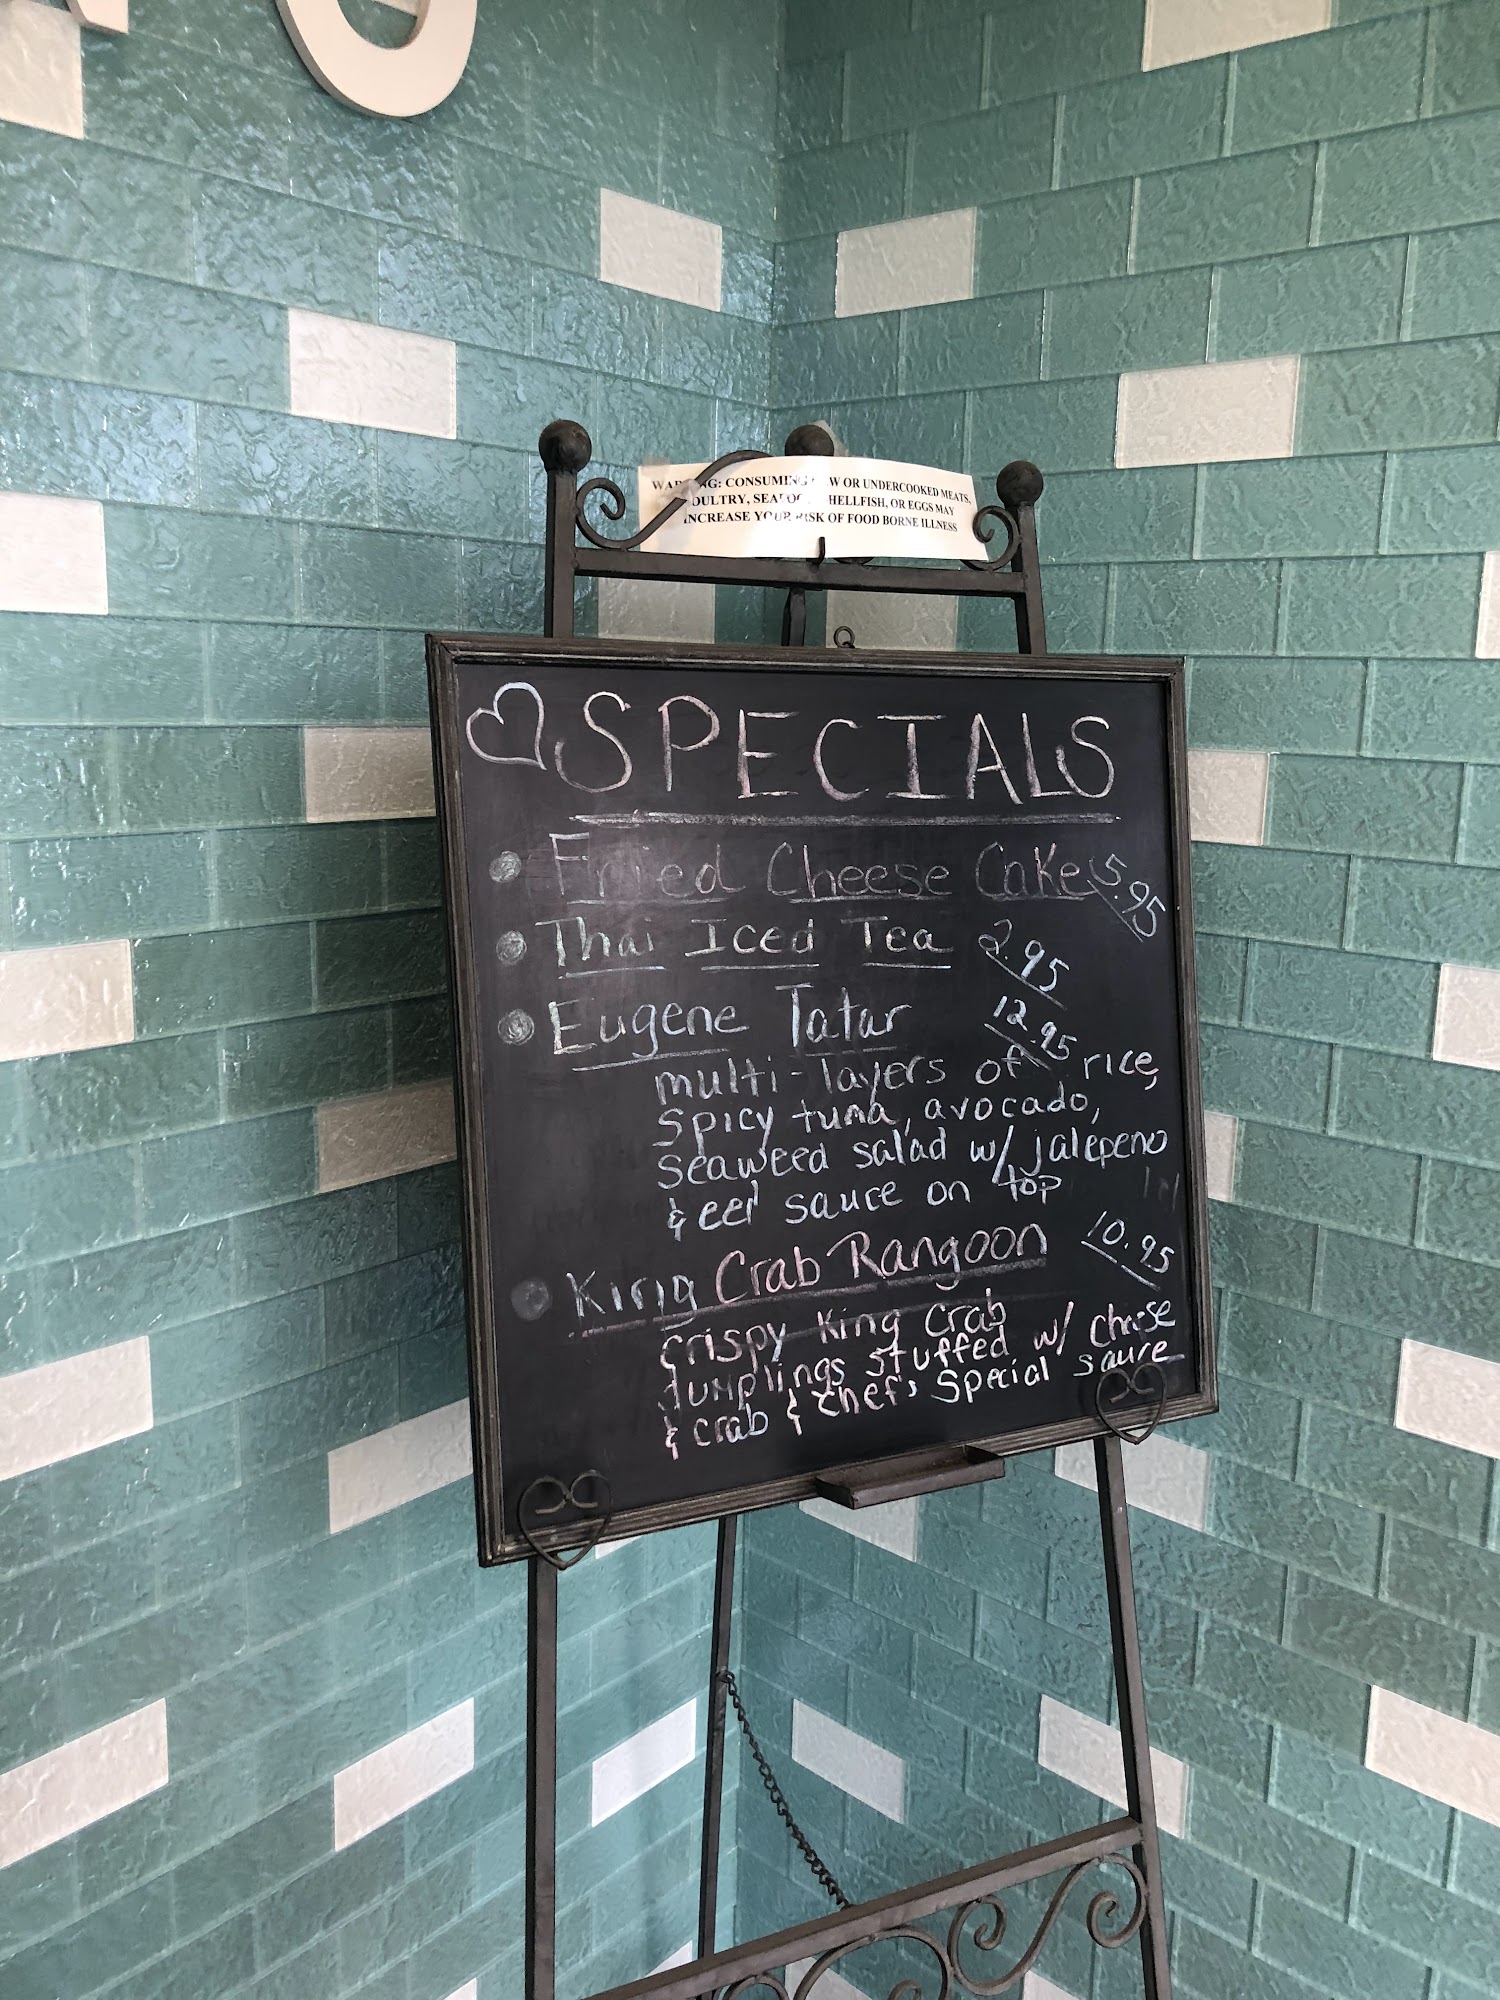 WARNING: CONSUMING RAW OR UNDERCOOKED MEATS,
POULTRY, SEAFOOD, SHELLFISH, OR EGGS MAY
INCREASE YOUR RISK OF FOOD BORNE ILLNESS
SPECIALS
Fried Cheese Cake 5.95
Thai Iced Tea 2.95
Eugene Tatar 12.95
multi-layers of rice,
spicy tuna, avocado,
seaweed salad w/ jalepeno
& eel sauce on top
King Crab Rangoon 10.95
crispy King Crab
dumplings stuffed w/ cheese
& crab & chef's special sauce